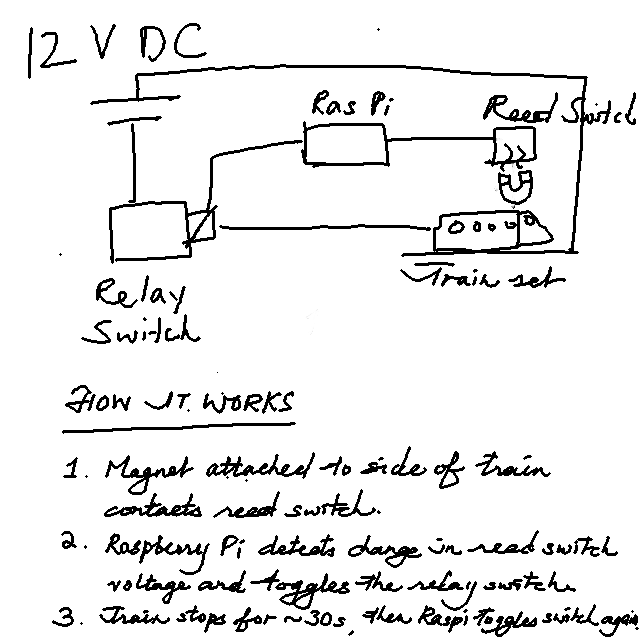 12 V DC
Ras Pi
Reed Switch
Relay
Switch
Train set
HOW IT WORKS
1. Magnet attached to side of train
contacts reed switch.
2. Raspberry Pi detects change in reed switch
voltage and toggles the relay switch.
3. Train stops for ~30s, then Raspi toggles switch again